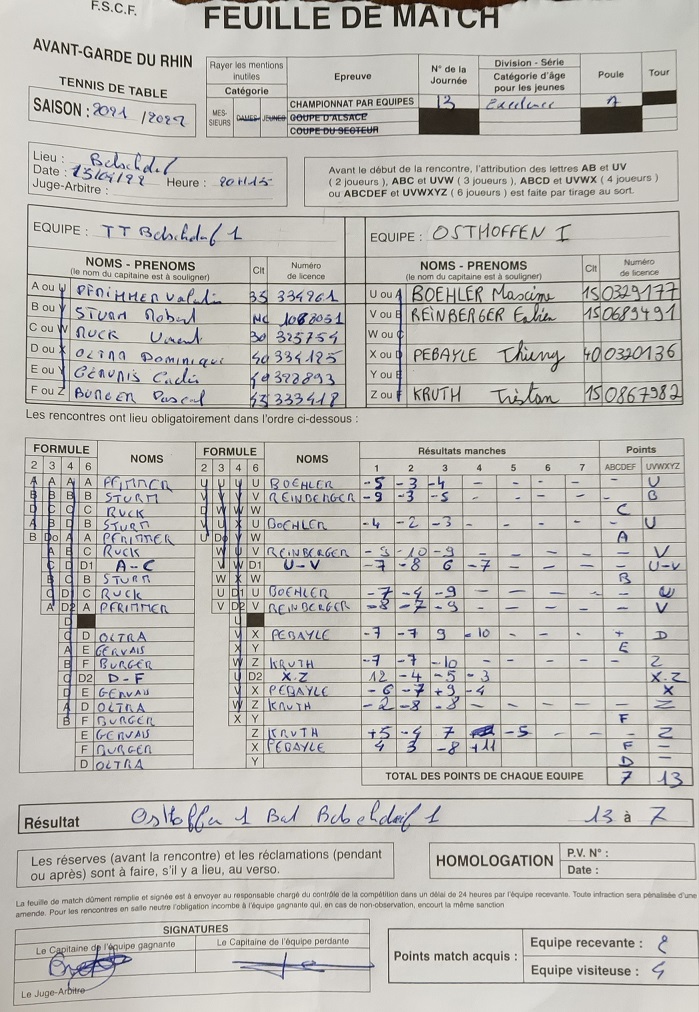 F.S.C.F.
FEUILLE DE MATCH
AVANT-GARDE DU RHIN
TENNIS DE TABLE
SAISON : 2021 / 2022
Rayer les mentions inutiles
Catégorie
MES-SIEURS DAMES JEUNES
Epreuve
CHAMPIONNAT PAR EQUIPES
COUPE D'ALSACE
COUPE DU SECTEUR
N° de la Journée
13
Division - Série
Catégorie d'âge pour les jeunes
Excellence
Poule
Tour
Lieu :
Date : Heure : 20H15
Juge-Arbitre :
Avant le début de la rencontre, l'attribution des lettres AB et UV
( 2 joueurs ), ABC et UVW ( 3 joueurs ), ABCD et UVWX ( 4 joueurs )
ou ABCDEF et UVWXYZ ( 6 joueurs ) est faite par tirage au sort.
EQUIPE : TT 1
EQUIPE : OSTHOFFEN I
NOMS - PRENOMS (le nom du capitaine est à souligner) Clt Numéro de licence
NOMS - PRENOMS (le nom du capitaine est à souligner) Clt Numéro de licence
A ou U PFRIMMER 35 334961
U ou A BOEHLER Maxime 15 0329177
B ou V STURM NC 1088051
V ou B REINBERGER 15 0689491
C ou W RUCK 30 325754
W ou C
D ou X OLTRA Dominique 40 334125
X ou D PEBAYLE Thierry 40 0320136
E ou Y GERVAIS 40 322893
Y ou E
F ou Z BURGER Pascal 45 333418
Z ou F KRUTH Tristan 15 0867982
Les rencontres ont lieu obligatoirement dans l'ordre ci-dessous :
FORMULE NOMS FORMULE NOMS Résultats manches Points
2 3 4 6 2 3 4 6 1 2 3 4 5 6 7 ABCDEF UVWXYZ
A A A A PFRIMMER U BOEHLER -5 -3 -4 - - - - - U
B B B B STURM V REINBERGER -9 -3 -5 - - - - - B
C RUCK W C
B STURM U BOEHLER -4 -2 -3 - - - - - U
A PFRIMMER W A
C RUCK V REINBERGER -9 -10 -9 - - - - - V
D1 A-C D1 U-V -7 -8 6 -7 - - - - U-V
B STURM W B
C RUCK U BOEHLER -7 -4 -9 - - - - - U
A PFRIMMER V REINBERGER -8 -7 -9 - - - - - V
D OLTRA X PEBAYLE -7 -7 9 -10 - - - + D
E GERVAIS Y E
F BURGER Z KRUTH -7 -7 -10 - - - - - Z
D2 D-F D2 X.Z 12 -4 -5 -3 X.Z
E GERVAIS X PEBAYLE -6 -7 +9 -4 X
D OLTRA Z KRUTH -2 -8 -8 - - - - - Z
F BURGER Y F
E GERVAIS Z KRUTH +5 -4 7 -5 - - - Z
F BURGER X PEBAYLE 4 3 -8 +11 F -
D OLTRA Y D -
TOTAL DES POINTS DE CHAQUE EQUIPE 7 13
Résultat Osthoffen 1 Bat 1 13 à 7
Les réserves (avant la rencontre) et les réclamations (pendant
ou après) sont à faire, s'il y a lieu, au verso.
HOMOLOGATION
P.V. N° :
Date :
La feuille de match dûment remplie et signée est à envoyer au responsable chargé du contrôle de la compétition dans un délai de 24 heures par l'équipe recevante. Toute infraction sera pénalisée d'une
amende. Pour les rencontres en salle neutre l'obligation incombe à l'équipe gagnante qui, en cas de non-observation, encourt la même sanction
SIGNATURES
Le Capitaine de l'équipe gagnante Le Capitaine de l'équipe perdante
Le Juge-Arbitre
Points match acquis :
Equipe recevante : 2
Equipe visiteuse : 4